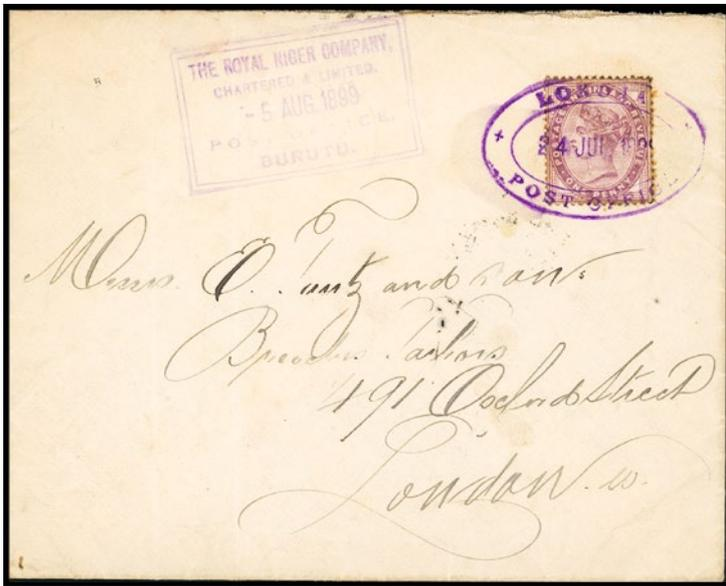 THE ROYAL NIGER COMPANY,
CHARTERED & LIMITED.
- 5 AUG. 1899
POST OFFICE,
BURUTU.
LOKOJA
24 JUL 1899
POST OFFICE
ONE PENNY
Messrs. E. Tautz and Sons
Breeches Tailors
491 Oxford Street
London. W.